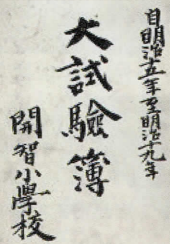 自明治十五年至明治十九年
大試驗簿
開智小學校